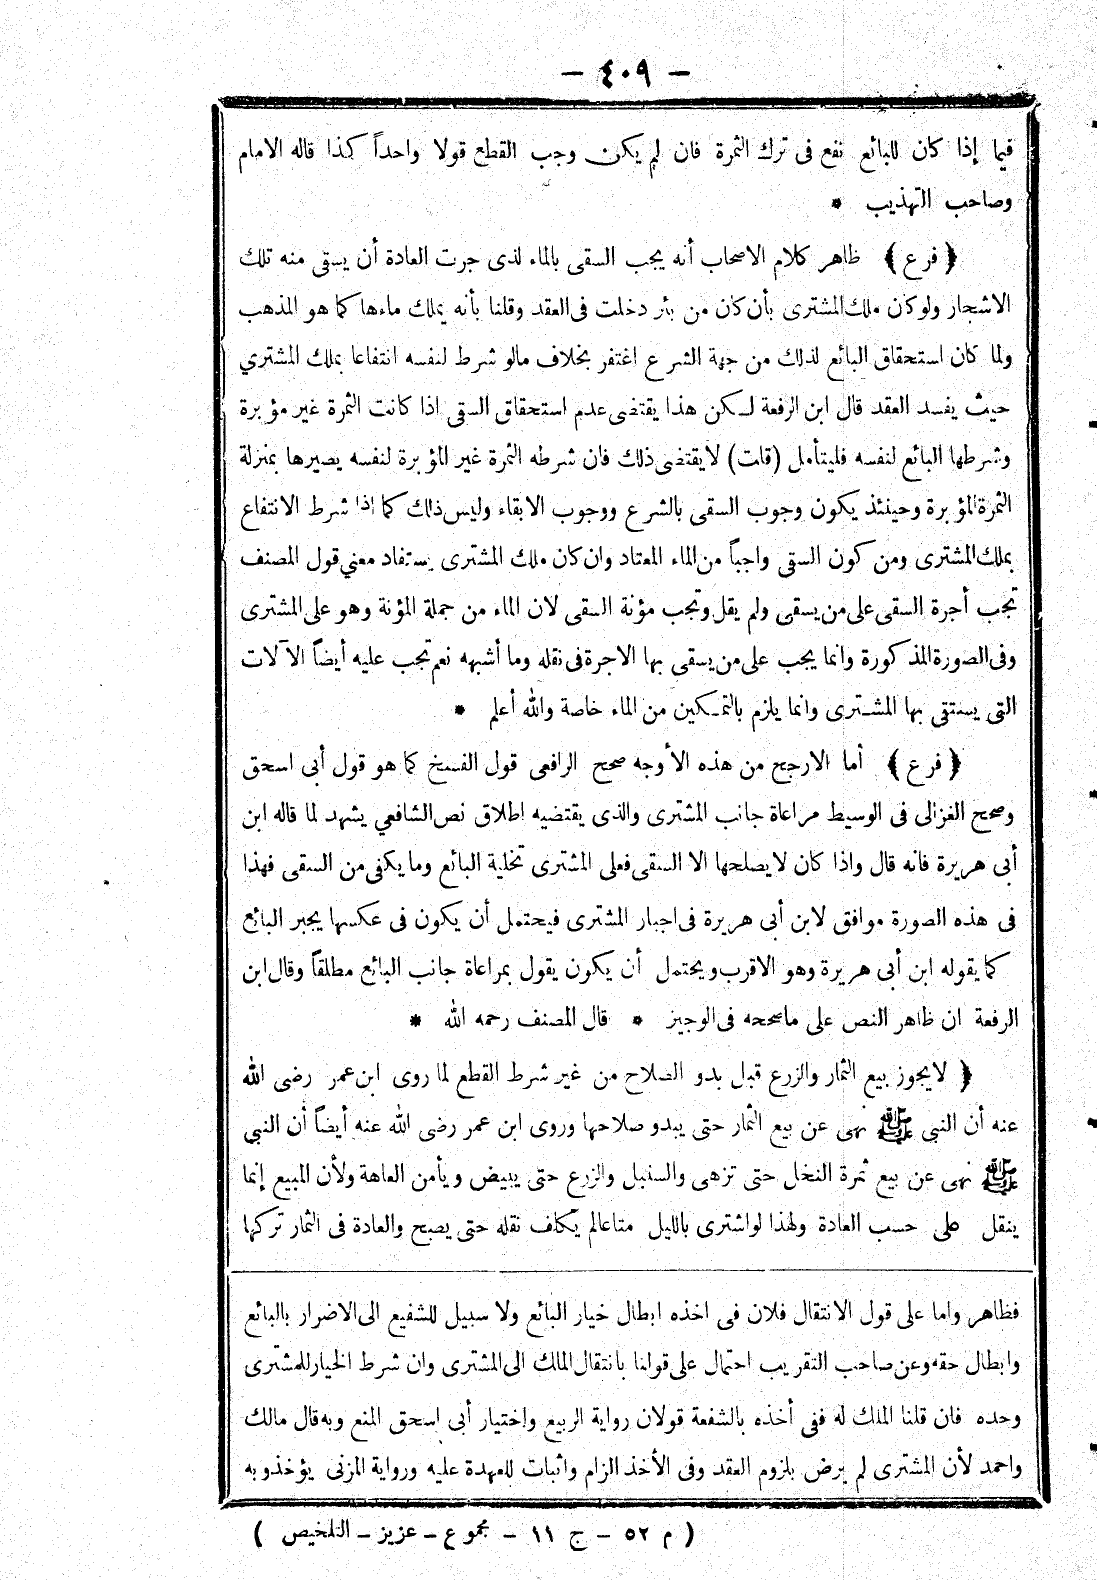 — ٤٠٩ —
فيما إذا كان للبائع نفع فى ترك الثمرة فان لم يكن وجب القطع قولا واحداً كذا قاله الامام
وصاحب التهذيب *
﴿ فرع ﴾ ظاهر كلام الاصحاب أنه يجب السقى بالماء لذى جرت العادة أن يسقى منه تلك
الاشجار ولو كان ملك المشترى بأن كان من بئر دخلت فى العقد وقلنا بأنه يملك ماءها كما هو المذهب
ولما كان استحقاق البائع لذلك من جهة الشرع اغتفر بخلاف مالو شرط لنفسه انتفاعا بملك المشتري
حيث يفسد العقد قال ابن الرفعة لكن هذا يقتضى عدم استحقاق السقى اذا كانت الثمرة غير مؤبرة
وشرطها البائع لنفسه فليتأمل (قلت) لا يقتضى ذلك فان شرطه الثمرة غير المؤبرة لنفسه يصيرها بمنزلة
الثمرة المؤبرة وحينئذ يكون وجوب السقى بالشرع ووجوب الابقاء وليس ذلك كما اذا شرط الانتفاع
بملك المشترى ومن كون السقى واجباً من الماء المعتاد وان كان ملك المشترى يستفاد معني قول المصنف
تجب أجرة السقى على من يسقى ولم يقل وتجب مؤنة السقى لان الماء من جملة المؤنة وهو على المشترى
وفى الصورة المذكورة وانما يجب على من يسقى بها الاجرة فى نقله وما أشبهه نعم تجب عليه أيضاً الآلات
التى يستقى بها المشترى وانما يلزم بالتمكين من الماء خاصة والله أعلم *
﴿ فرع ﴾ أما الارجح من هذه الأوجه صحح الرافعى قول الفسخ كما هو قول أبى اسحق
وصحح الغزالى فى الوسيط مراعاة جانب المشترى والذى يقتضيه اطلاق نص الشافعي يشهد لما قاله ابن
أبى هريرة فانه قال واذا كان لا يصلحها الا السقى فعلى المشترى تخلية البائع وما يكفى من السقى فهذا
فى هذه الصورة موافق لابن أبى هريرة فى اجبار المشترى فيحتمل أن يكون فى عكسها يجبر البائع
كما يقوله ابن أبى هريرة وهو الاقرب ويحتمل أن يكون يقول بمراعاة جانب البائع مطلقاً وقال ابن
الرفعة ان ظاهر النص على ماصححه فى الوجيز * قال المصنف رحمه الله *
﴿ لايجوز بيع الثمار والزرع قبل بدو الصلاح من غير شرط القطع لما روى ابن عمر رضى الله
عنه أن النبى ﷺ نهى عن بيع الثمار حتى يبدو صلاحها وروى ابن عمر رضى الله عنه أيضاً أن النبي
ﷺ نهى عن بيع ثمرة النخل حتى تزهى والسنبل والزرع حتى يبيض ويأمن العاهة ولأن المبيع إنما
ينقل على حسب العادة ولهذا لواشترى بالليل متاعالم يكلف نقله حتى يصبح والعادة فى الثمار تركها
فظاهر واما على قول الانتقال فلان فى اخذه ابطال خيار البائع ولا سبيل للشفيع الى الاضرار بالبائع
وابطال حقه وعن صاحب التقريب احتمال على قولنا بانتقال الملك الى المشترى وان شرط الخيار للمشترى
وحده فان قلنا الملك له ففى أخذه بالشفعة قولان رواية الربيع واختيار أبى اسحق المنع وبه قال مالك
واحمد لأن المشترى لم يرض بلزوم العقد وفى الأخذ الزام واثبات للعهدة عليه ورواية المزنى يؤخذ وبه
( م ٥٢ – ج ١١ – مجموع – عزيز – التلخيص )